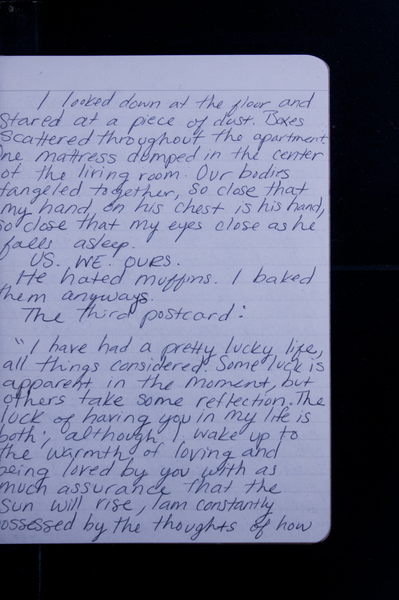 I looked down at the floor and
Stared at a piece of dust. Boxes
Scattered throughout the apartment
One mattress dumped in the center
of the living room. Our bodies
tangeled together, so close that
my hand on his chest is his hand,
so close that my eyes close as he
falls asleep.
US. WE. OURS.
He hated muffins. I baked
them anyways.
The third postcard:
"I have had a pretty lucky life,
all things considered. Some luck is
apparent in the moment, but
others take some reflection. The
luck of having you in my life is
both; although I wake up to
the warmth of loving and
being loved by you with as
much assurance that the
sun will rise, I am constantly
possessed by the thoughts of how